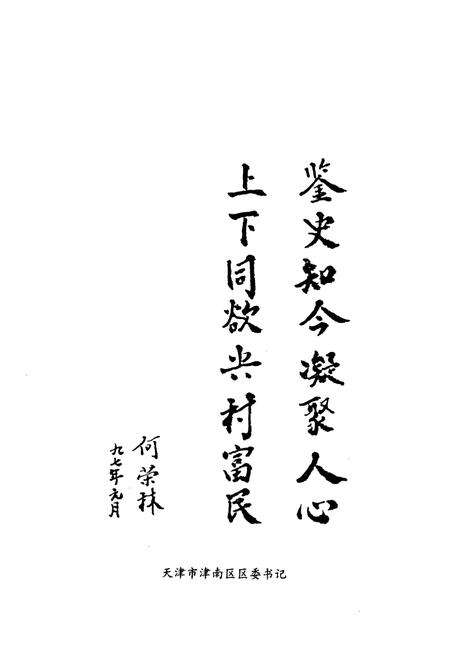 鉴史知今凝聚人心
上下同欲兴村富民
何荣林
九七年元月
天津市津南区区委书记